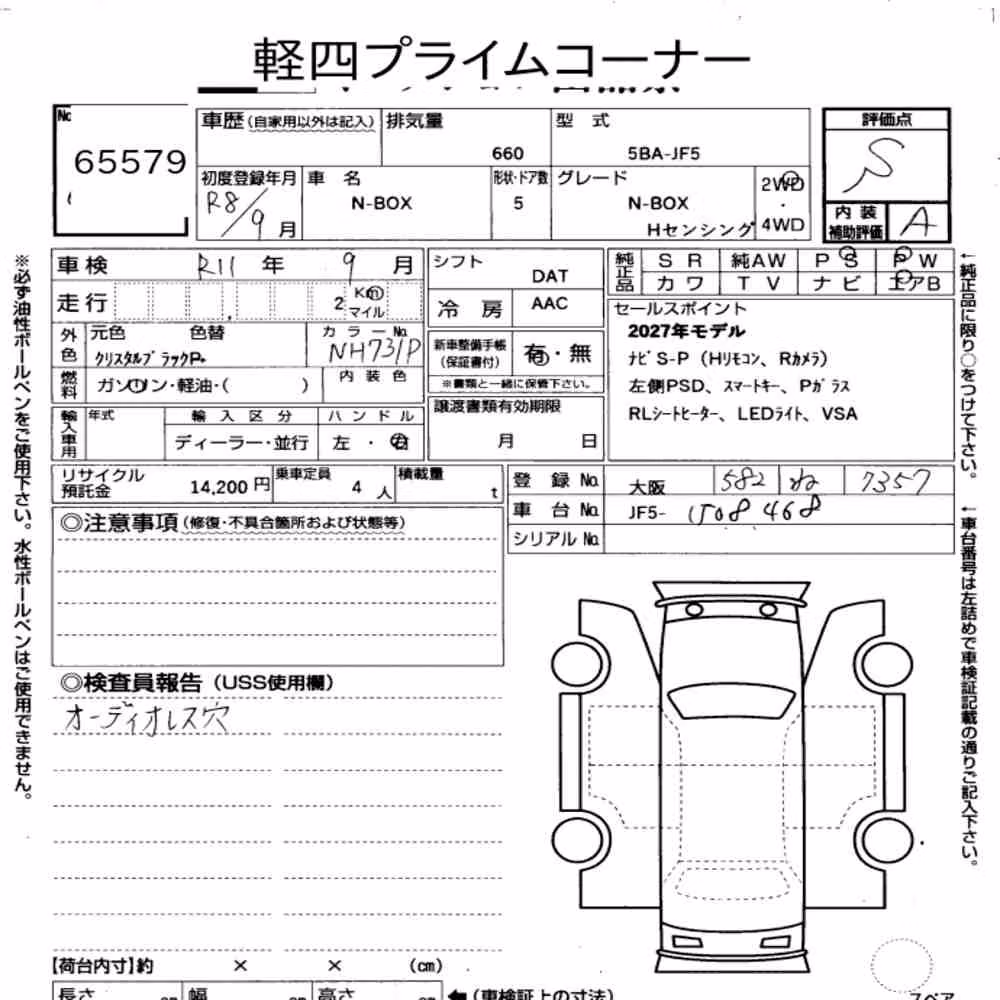 軽四プライムコーナー
No
65579
車歴(自家用以外は記入) 排気量 型式
660 5BA-JF5
初度登録年月 車名 形状・ドア数 グレード 2WD
・
4WD
R8/9月 N-BOX 5 N-BOX
Hセンシング
評価点
S
内装
補助評価 A
車検 R11年 9月
走行 2 Km
マイル
外色 元色 色替 カラーNo
クリスタルブラックP• NH731P
燃料 ガソリン・軽油・( ) 内装色
輸入車用 年式 輸入区分 ハンドル
ディーラー・並行 左・右
シフト DAT
冷房 AAC
新車整備手帳
(保証書付) 有・無
※書類と一緒に保管下さい。
譲渡書類有効期限
月 日
純正品 SR 純AW PS PW
カワ TV ナビ エアB
セールスポイント
2027年モデル
ナビS-P(Hリモコン、Rカメラ)
左側PSD、スマートキー、Pガラス
RLシートヒーター、LEDライト、VSA
リサイクル
預託金 14,200円 乗車定員 4人 積載量 t
登録No 大阪 582 ね 7357
車台No JF5- 1508468
シリアルNo
◎注意事項(修復・不具合箇所および状態等)
◎検査員報告(USS使用欄)
オーディオレス穴
※必ず油性ボールペンをご使用下さい。水性ボールペンはご使用できません。
←純正品に限り○をつけて下さい。
←車台番号は左詰めで車検証記載の通りご記入下さい。
【荷台内寸】約 × × (cm)
長さ cm 幅 cm 高さ cm ←(車検証上の寸法)
スペア